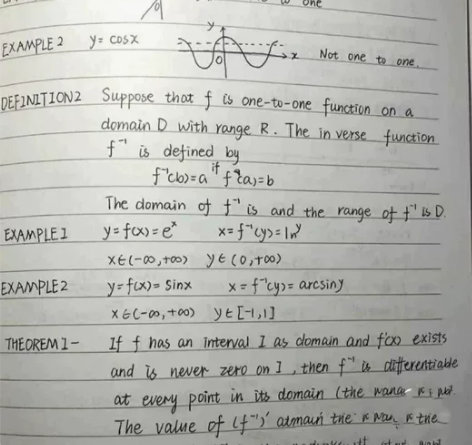 one
EXAMPLE 2 y=cosx y O x Not one to one.
DEFINITION2 Suppose that f is one-to-one function on a
domain D with range R. The inverse function
f⁻¹ is defined by
f⁻¹(b)=a if f(a)=b
The domain of f⁻¹ is and the range of f⁻¹ is D.
EXAMPLE1 y=f(x)=eˣ x=f⁻¹(y)=lnʸ
x∈(-∞,+∞) y∈(0,+∞)
EXAMPLE2 y=f(x)=sinx x=f⁻¹(y)=arcsiny
x∈(-∞,+∞) y∈[-1,1]
THEOREM1- If f has an interval I as domain and f'(x) exists
and is never zero on I, then f⁻¹ is differentiable
at every point in its domain (the
The value of (f⁻¹)' the